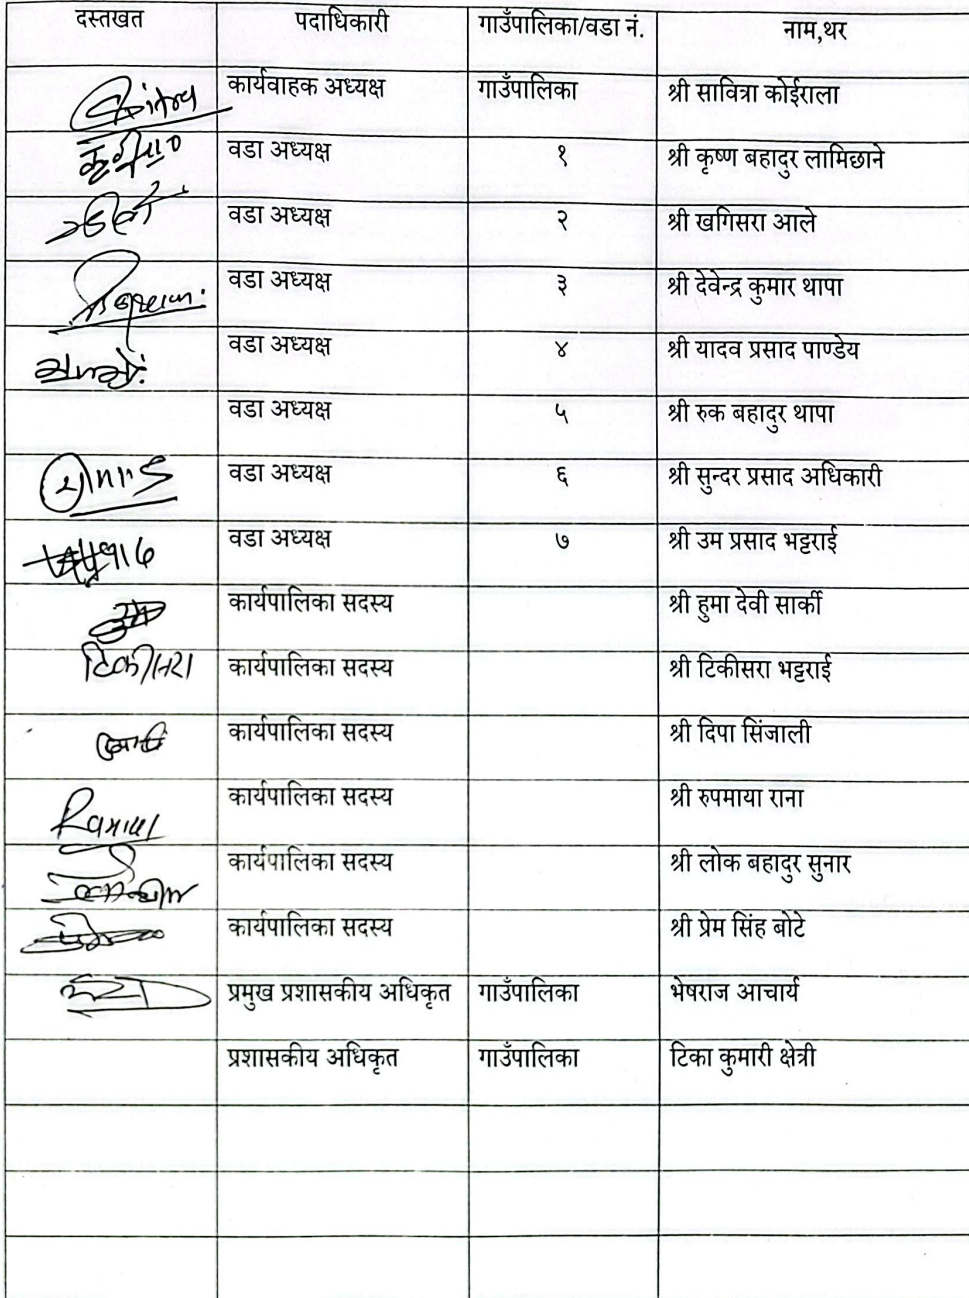 दस्तखत पदाधिकारी गाउँपालिका/वडा नं. नाम,थर
कार्यवाहक अध्यक्ष गाउँपालिका श्री सावित्रा कोईराला
वडा अध्यक्ष १ श्री कृष्ण बहादुर लामिछाने
वडा अध्यक्ष २ श्री खगिसरा आले
वडा अध्यक्ष ३ श्री देवेन्द्र कुमार थापा
वडा अध्यक्ष ४ श्री यादव प्रसाद पाण्डेय
वडा अध्यक्ष ५ श्री रुक बहादुर थापा
वडा अध्यक्ष ६ श्री सुन्दर प्रसाद अधिकारी
वडा अध्यक्ष ७ श्री उम प्रसाद भट्टराई
कार्यपालिका सदस्य श्री हुमा देवी सार्की
टिकीसरा कार्यपालिका सदस्य श्री टिकीसरा भट्टराई
कार्यपालिका सदस्य श्री दिपा सिंजाली
कार्यपालिका सदस्य श्री रुपमाया राना
कार्यपालिका सदस्य श्री लोक बहादुर सुनार
कार्यपालिका सदस्य श्री प्रेम सिंह बोटे
प्रमुख प्रशासकीय अधिकृत गाउँपालिका भेषराज आचार्य
प्रशासकीय अधिकृत गाउँपालिका टिका कुमारी क्षेत्री